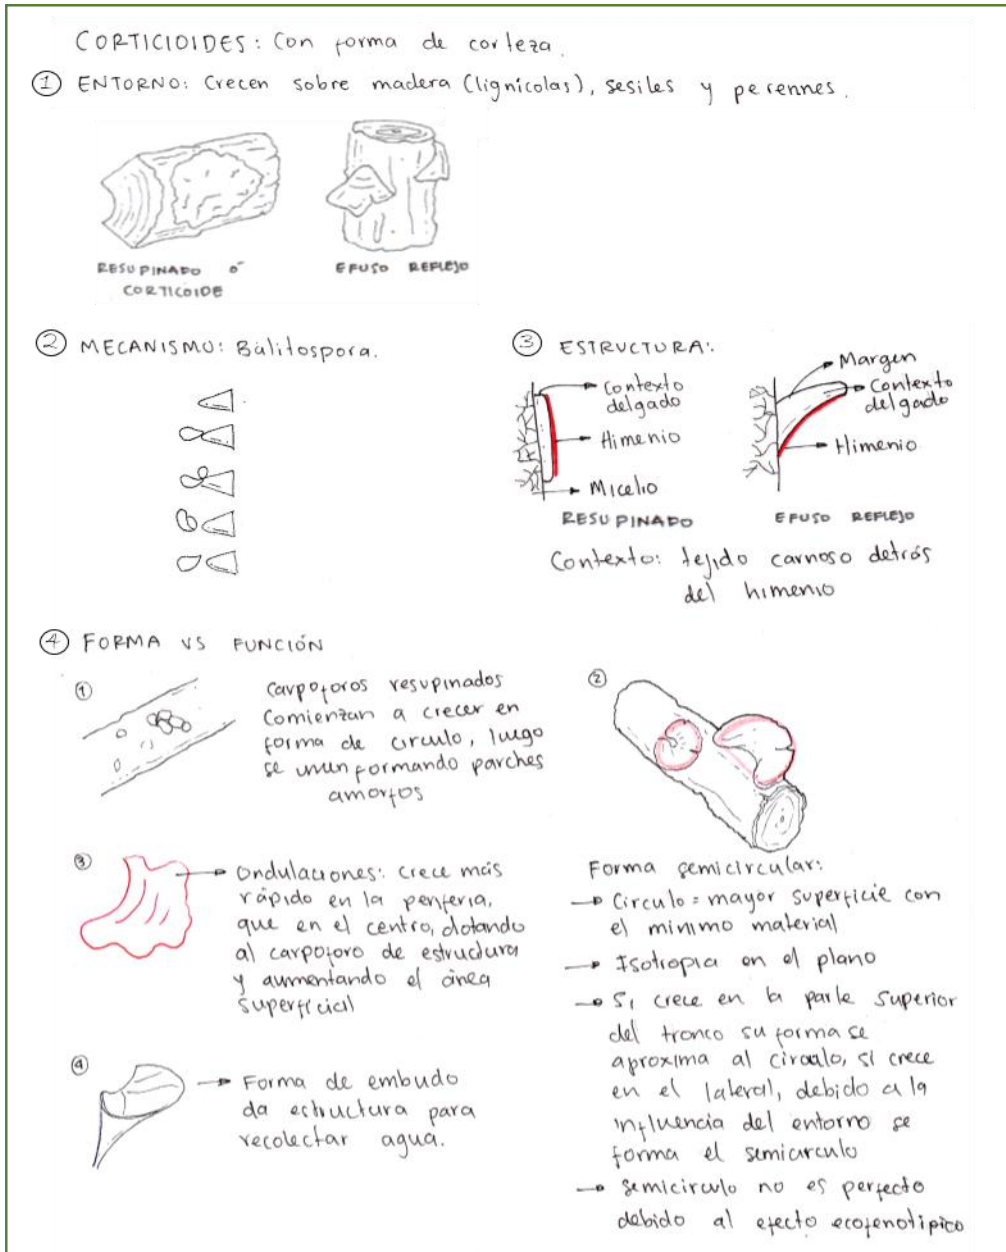 CORTICIOIDES: Con forma de corteza.
① ENTORNO: Crecen sobre madera (lignícolas), sesiles y perennes.
RESUPINADO ó
CORTICOIDE
EFUSO REFLEJO
② MECANISMO: Balitospora.
③ ESTRUCTURA:
Contexto
delgado
Himenio
Micelio
RESUPINADO
Margen
Contexto
delgado
Himenio
EFUSO REFLEJO
Contexto: tejido carnoso detrás
del himenio
④ FORMA VS FUNCIÓN
①
Carpoforos resupinados
comienzan a crecer en
forma de circulo, luego
se unen formando parches
amorfos
②
Forma semicircular:
→ Circulo = mayor superficie con
el minimo material
→ Isotropia en el plano
→ Si crece en la parte superior
del tronco su forma se
aproxima al circulo, si crece
en el lateral, debido a la
influencia del entorno se
forma el semicirculo
→ semicirculo no es perfecto
debido al efecto ecofenotipico
③
→ Ondulaciones: crece más
rápido en la periferia,
que en el centro, dotando
al carpoforo de estructura
y aumentando el área
superficial
④
→ Forma de embudo
da estructura para
recolectar agua.